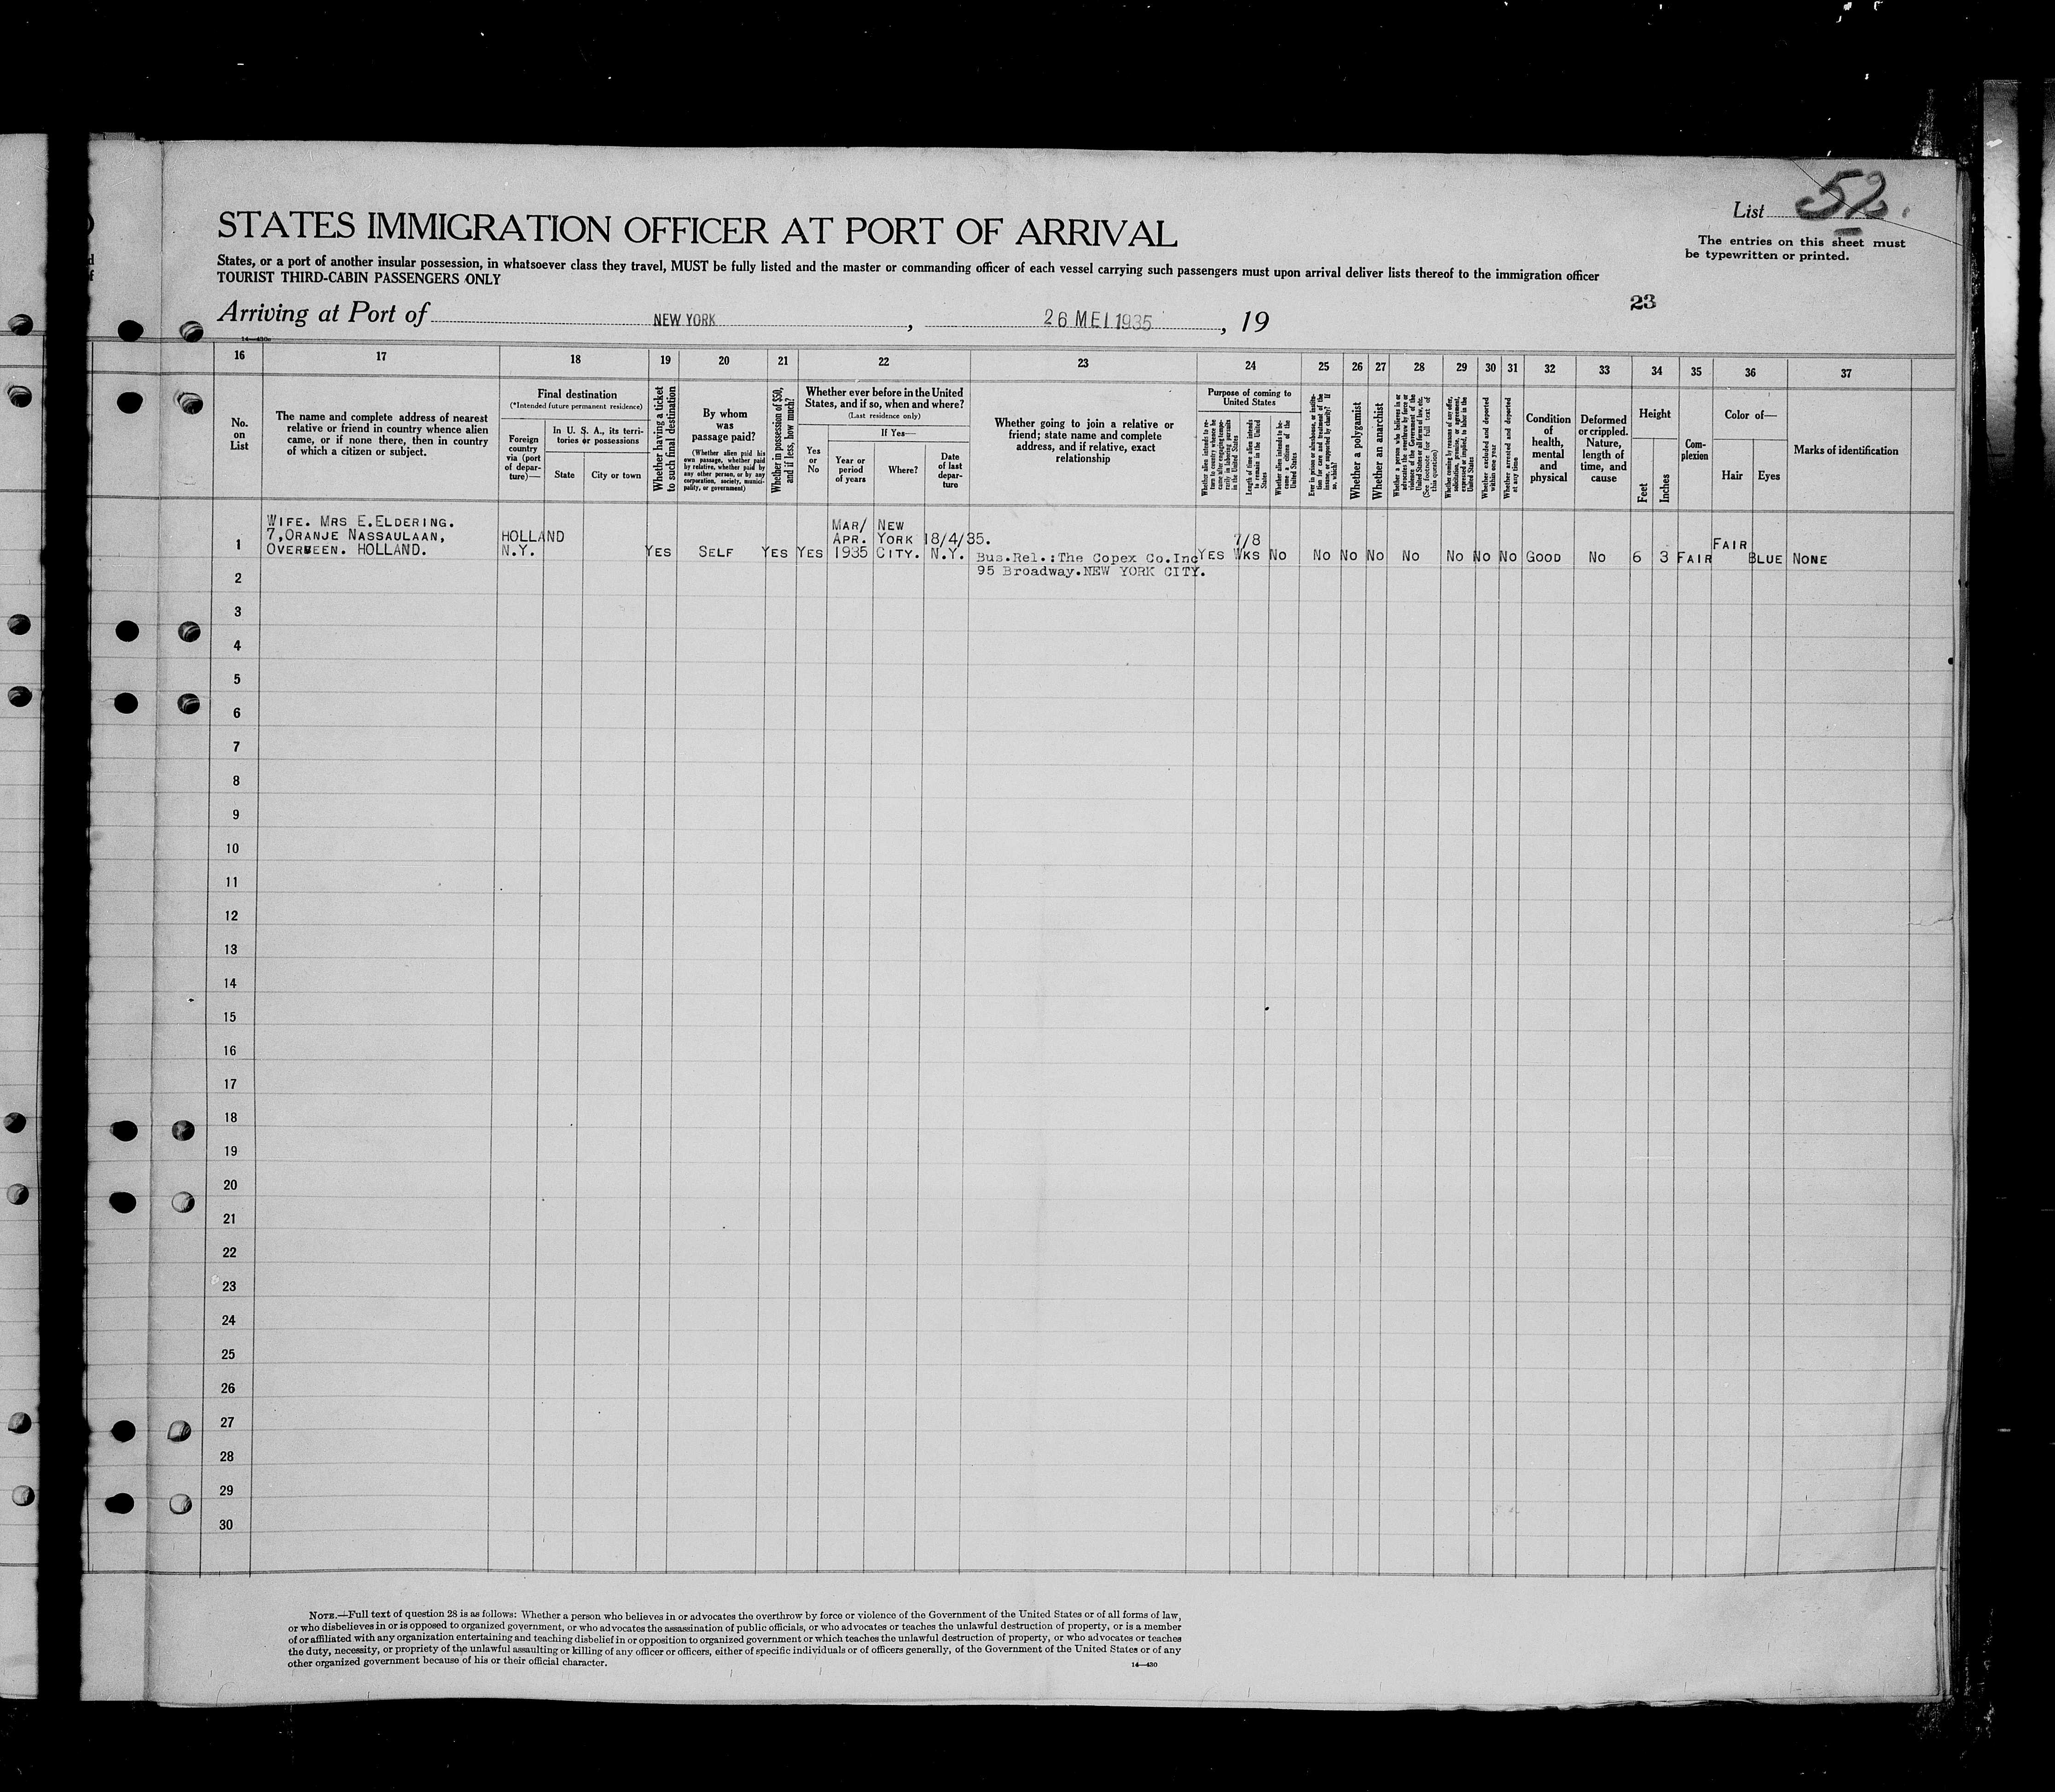 List 52.
The entries on this sheet must
be typewritten or printed.
STATES IMMIGRATION OFFICER AT PORT OF ARRIVAL
States, or a port of another insular possession, in whatsoever class they travel, MUST be fully listed and the master or commanding officer of each vessel carrying such passengers must upon arrival deliver lists thereof to the immigration officer
TOURIST THIRD-CABIN PASSENGERS ONLY
23
Arriving at Port of NEW YORK, 26 MEI 1935, 19
16 17 18 19 20 21 22 23 24 25 26 27 28 29 30 31 32 33 34 35 36 37
No.
on
List
The name and complete address of nearest
relative or friend in country whence alien
came, or if none there, then in country
of which a citizen or subject.
Final destination
(*Intended future permanent residence)
Foreign
country
via (port
of depar-
ture)—
In U. S. A., its terri-
tories or possessions
State
City or town
Whether having a ticket
to such final destination
By whom
was
passage paid?
(Whether alien paid his
own passage, whether paid
by relative, whether paid by
any other person, or by any
corporation, society, munici-
pality, or government)
Whether in possession of $50,
and if less, how much?
Whether ever before in the United
States, and if so, when and where?
(Last residence only)
Yes
or
No
If Yes—
Year or
period
of years
Where?
Date
of last
depar-
ture
Whether going to join a relative or
friend; state name and complete
address, and if relative, exact
relationship
Purpose of coming to
United States
Whether alien intends to re-
turn to country whence he
came after engaging tempo-
rarily in laboring pursuits
in the United States
Length of time alien intends
to remain in the United
States
Whether alien intends to be-
come a citizen of the
United States
Ever in prison or almshouse, or institu-
tion for care and treatment of the
insane, or supported by charity? If
so, which?
Whether a polygamist
Whether an anarchist
Whether a person who believes in or
advocates the overthrow by force or
violence of the Government of the
United States or all forms of law, etc.
(See footnote for full text of
this question)
Whether coming by reasons of any offer,
solicitation, promise, or agreement,
expressed or implied, to labor in the
United States
Whether excluded and deported
within one year
Whether arrested and deported
at any time
Condition
of
health,
mental
and
physical
Deformed
or crippled.
Nature,
length of
time, and
cause
Height
Feet
Inches
Com-
plexion
Color of—
Hair
Eyes
Marks of identification
WIFE. MRS E.ELDERING.
7,ORANJE NASSAULAAN,
OVERVEEN. HOLLAND.
HOLLAND
N.Y.
YES
SELF
YES
YES
MAR/
APR.
1935
NEW
YORK
CITY.
18/4/35.
N.Y.
Bus.Rel.:The Copex Co.Inc
95 Broadway.NEW YORK CITY.
YES
7/8
WKS
NO
NO
NO
NO
NO
NO
NO
NO
GOOD
NO
6
3
FAIR
FAIR
BLUE
NONE
1
2
3
4
5
6
7
8
9
10
11
12
13
14
15
16
17
18
19
20
21
22
23
24
25
26
27
28
29
30
NOTE.—Full text of question 28 is as follows: Whether a person who believes in or advocates the overthrow by force or violence of the Government of the United States or of all forms of law,
or who disbelieves in or is opposed to organized government, or who advocates the assassination of public officials, or who advocates or teaches the unlawful destruction of property, or is a member
of or affiliated with any organization entertaining and teaching disbelief in or opposition to organized government or which teaches the unlawful destruction of property, or who advocates or teaches
the duty, necessity, or propriety of the unlawful assaulting or killing of any officer or officers, either of specific individuals or of officers generally, of the Government of the United States or of any
other organized government because of his or their official character.
14—430